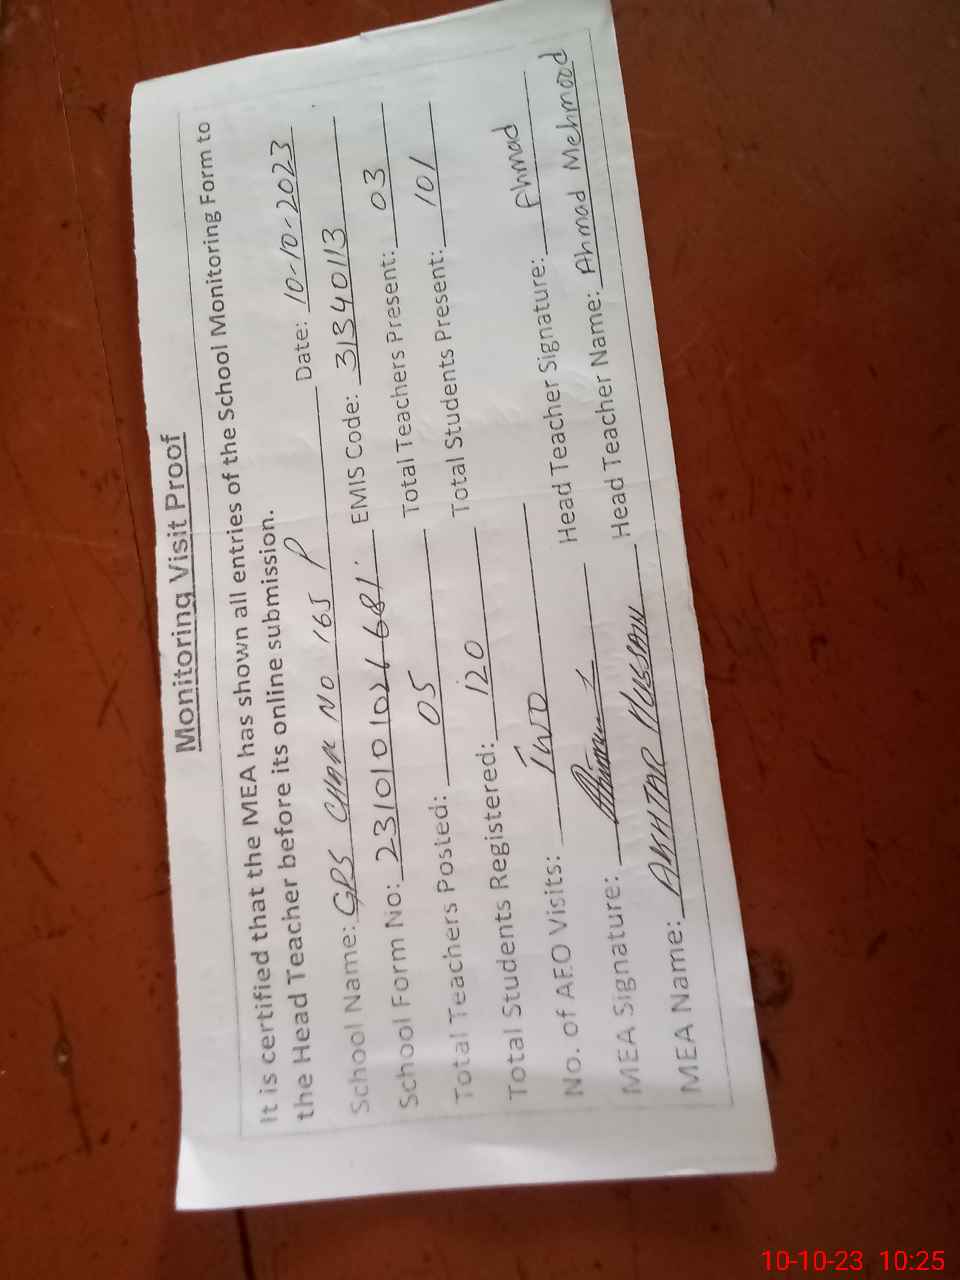 Monitoring Visit Proof
It is certified that the MEA has shown all entries of the School Monitoring Form to
the Head Teacher before its online submission.
School Name: GPS CHAK NO 165 P Date: 10-10-2023
School Form No: EMIS Code: 31340113
Total Teachers Posted: 05 Total Teachers Present: 03
Total Students Registered: 120 Total Students Present: 101
No. of AEO Visits: TWO
MEA Signature: Head Teacher Signature: Ahmad
MEA Name: AKHTAR HUSSAIN Head Teacher Name: Ahmad Mehmood
10-10-23 10:25